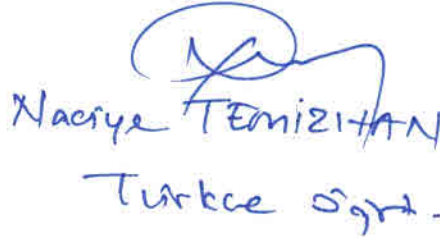 Naciye TEMİZHAN
Türkçe öğrt.